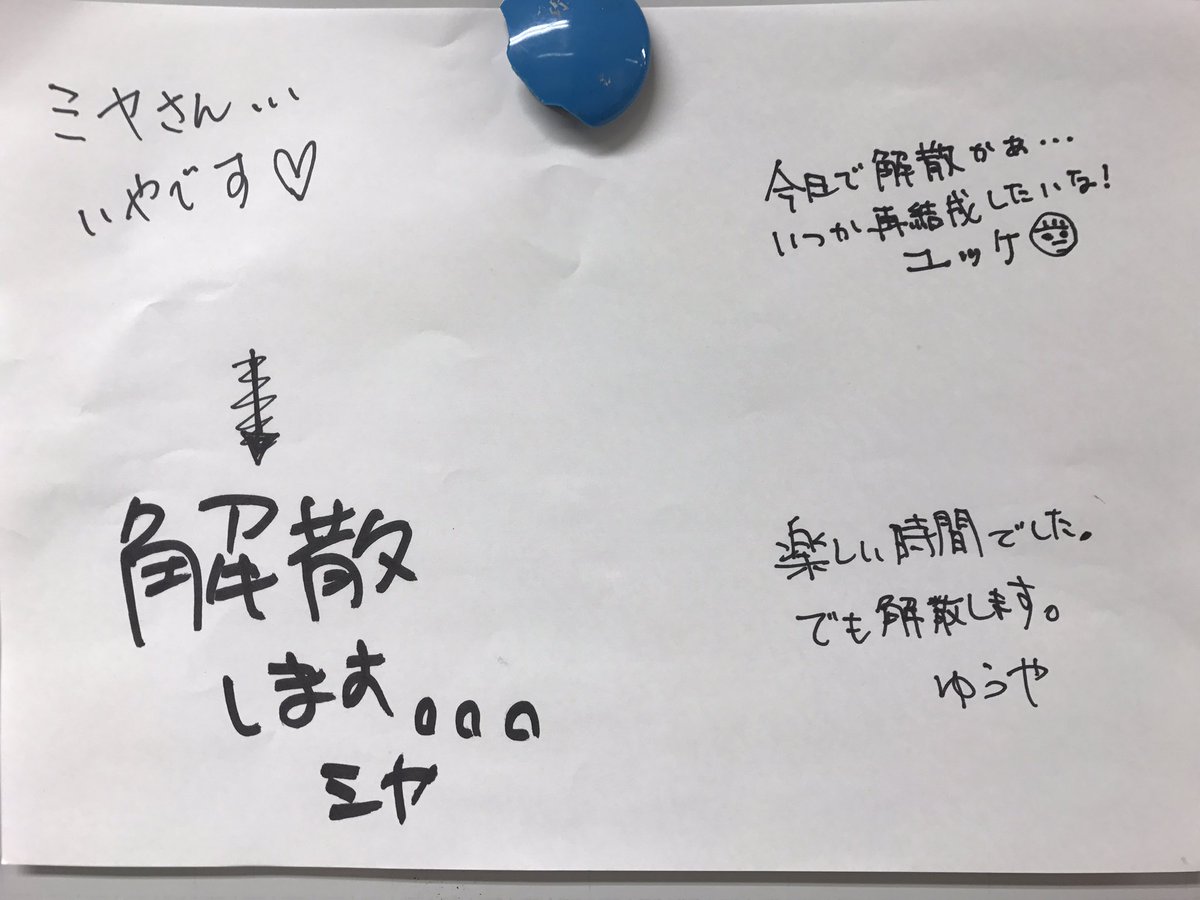 ミヤさん…
いやです♡
今日で解散かぁ…
いつか再結成したいな!
ユッケ
解散
します。。。
ミヤ
楽しい時間でした。
でも解散します。
ゆうや